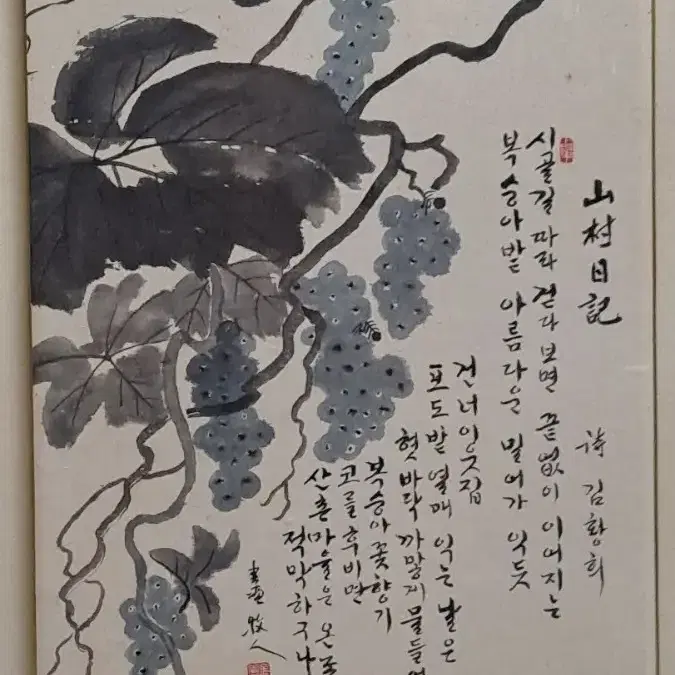 山村日記
詩 김황희
시골길 따라 걷다 보면 끝없이 이어지는
복숭아밭 아름다운 밀어가 익듯
건너 이웃집
포도밭 열매 익는 날은
혓바닥 까맣게 물들
복숭아 꽃향기
코를 후비면
산촌마을은 온
적막하구나
畫 牧人